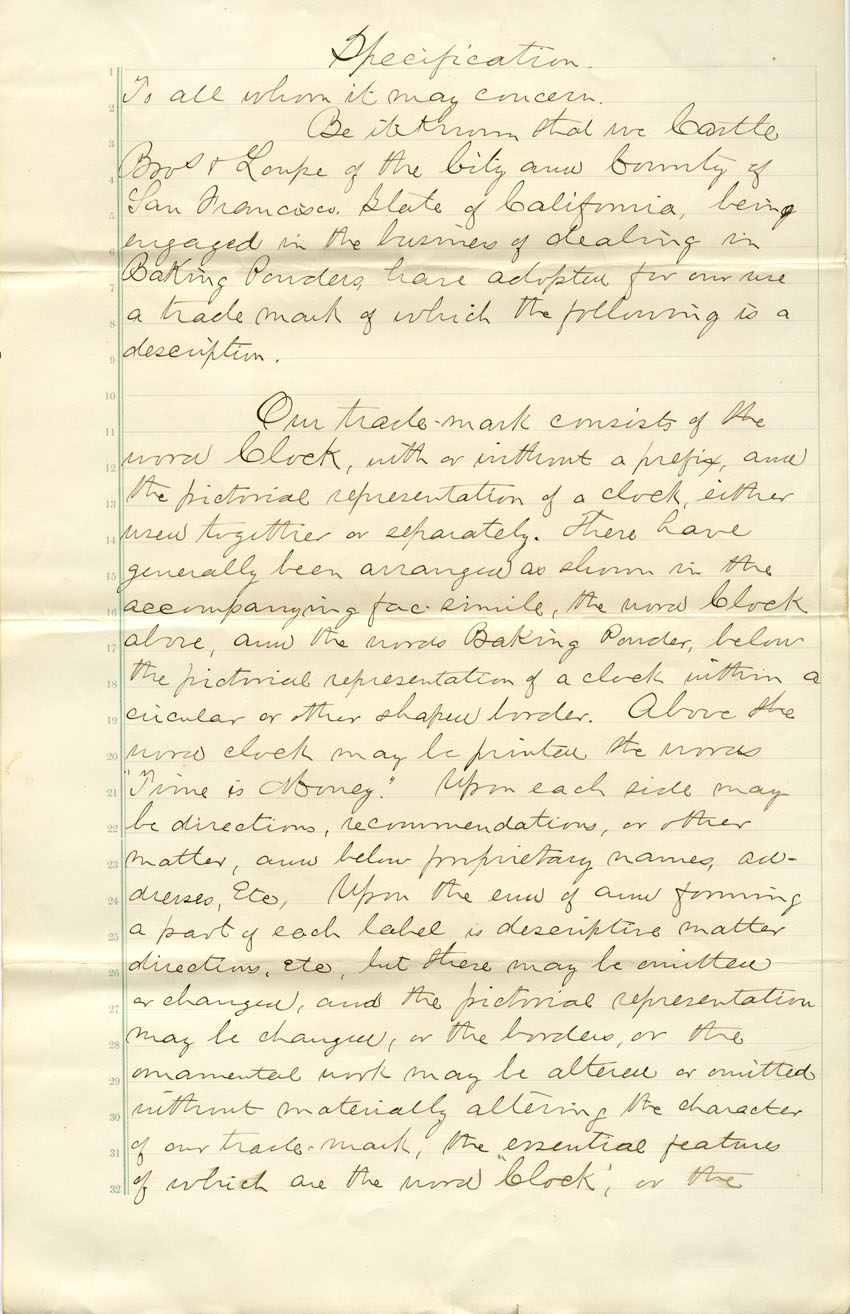 Specification.
1
To all whom it may concern.
2
Be it Known that we Castle
3
Bros & Loupe of the City and County of
4
San Francisco. State of California, being
5
engaged in the business of dealing in
6
Baking Powders, have adopted for our use
7
a trade mark of which the following is a
8
description.
9
10
Our trade-mark consists of the
11
word Clock, with or without a prefix, and
12
the pictorial representation of a clock, either
13
used together or separately. These have
14
generally been arranged as shown in the
15
accompanying fac-simile, the word Clock
16
above, and the words Baking Powder, below
17
the pictorial representation of a clock within a
18
circular or other shaped border. Above the
19
word clock may be printed the words
20
"Time is Money." Upon each side may
21
be directions, recommendations, or other
22
matter, and below proprietary names, ad-
23
dresses, Etc, Upon the end of and forming
24
a part of each label is descriptive matter
25
directions, etc, but these may be omitted
26
or changed, and the pictorial representation
27
may be changed, or the borders, or the
28
ornamental work may be altered or omitted
29
without materially altering the character
30
of our trade-mark, the essential features
31
of which are the word "Clock", or the
32